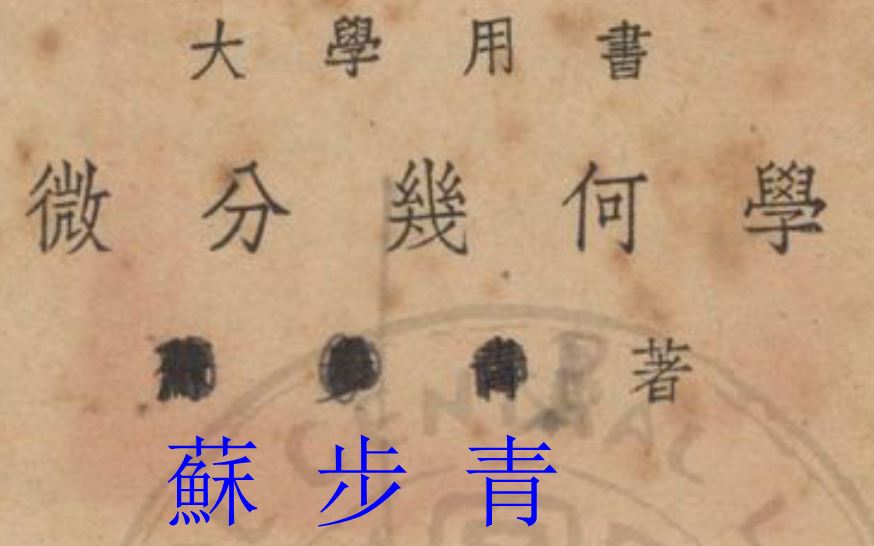 大學用書
微分幾何學
著
蘇步青